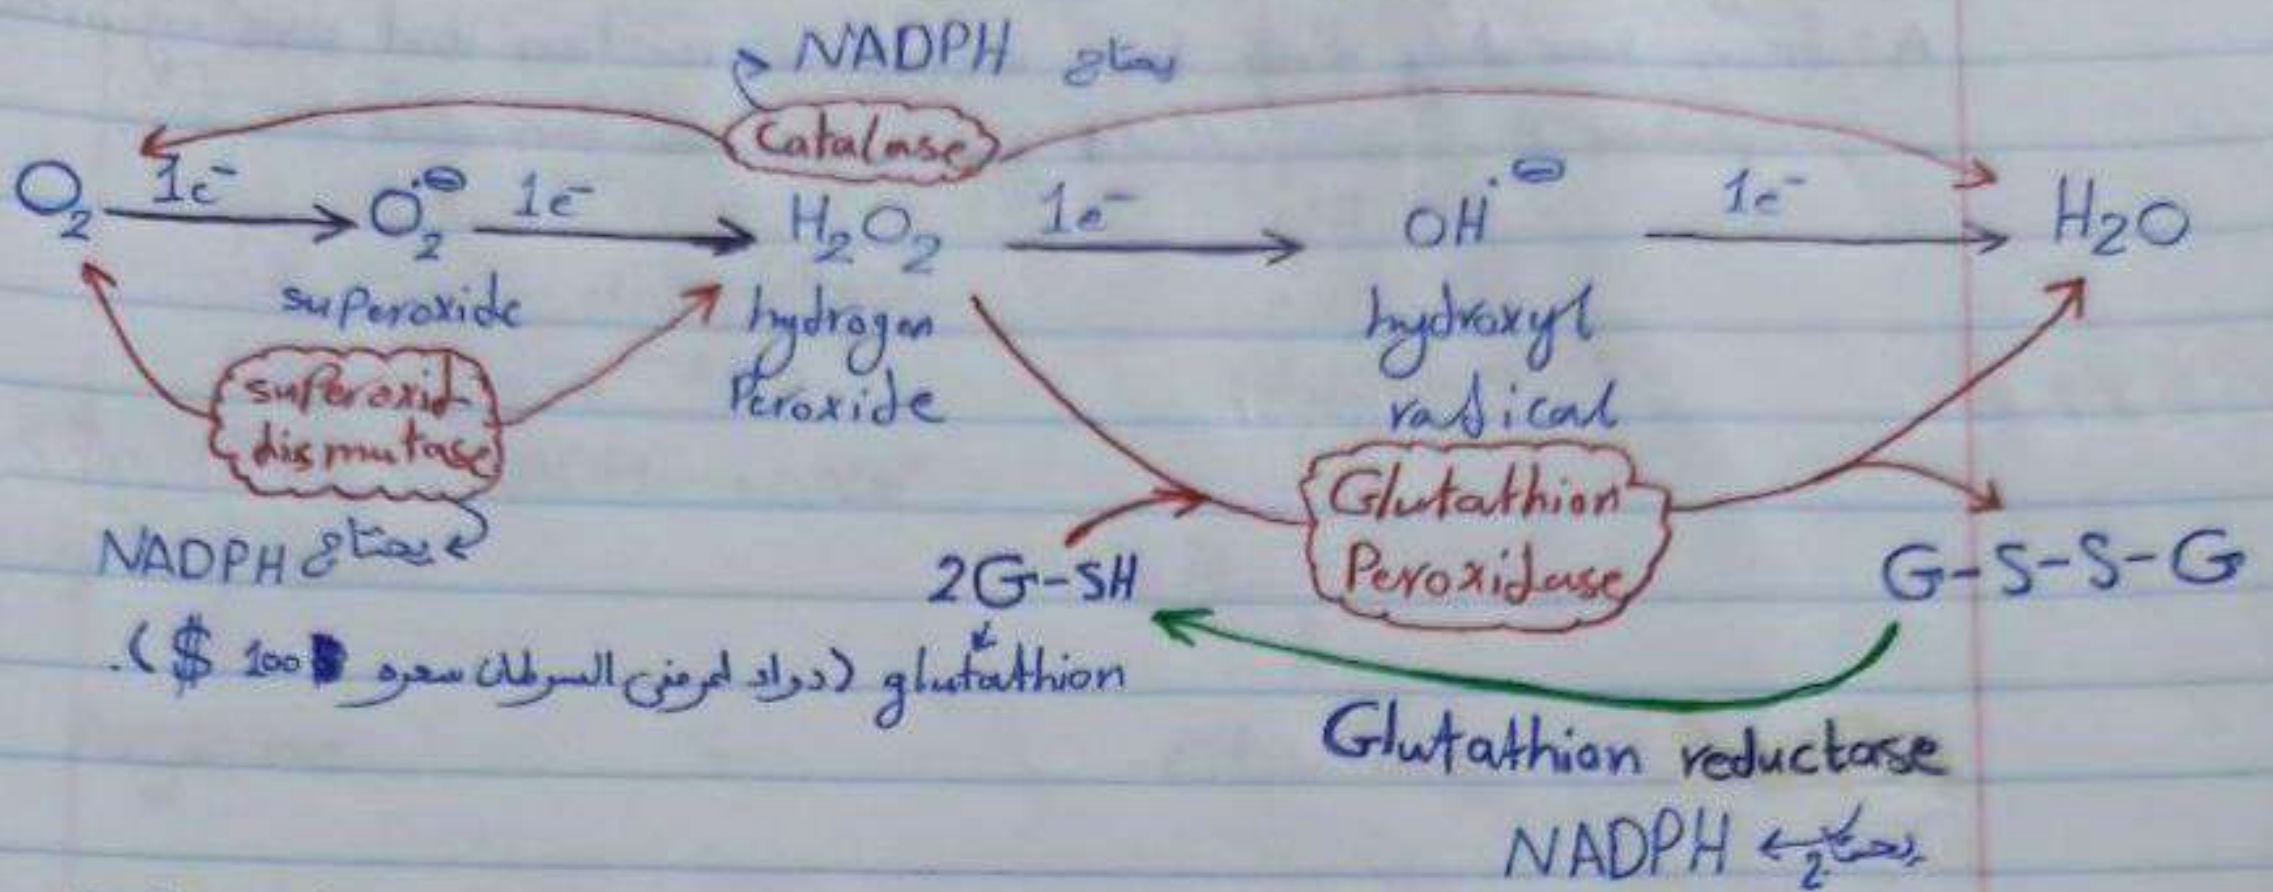 NADPH يحتاج
Catalase
O₂ 1e⁻ O₂•⊖ 1e⁻ H₂O₂ 1e⁻ OH•⊖ 1e⁻ H₂O
superoxide
hydrogen
Peroxide
hydroxyl
radical
superoxid
dismutase
NADPH يحتاج
Glutathion
Peroxidase
2G-SH
G-S-S-G
glutathion (دواء لمرضى السرطان سعره 100 $).
Glutathion reductase
يحتاج NADPH